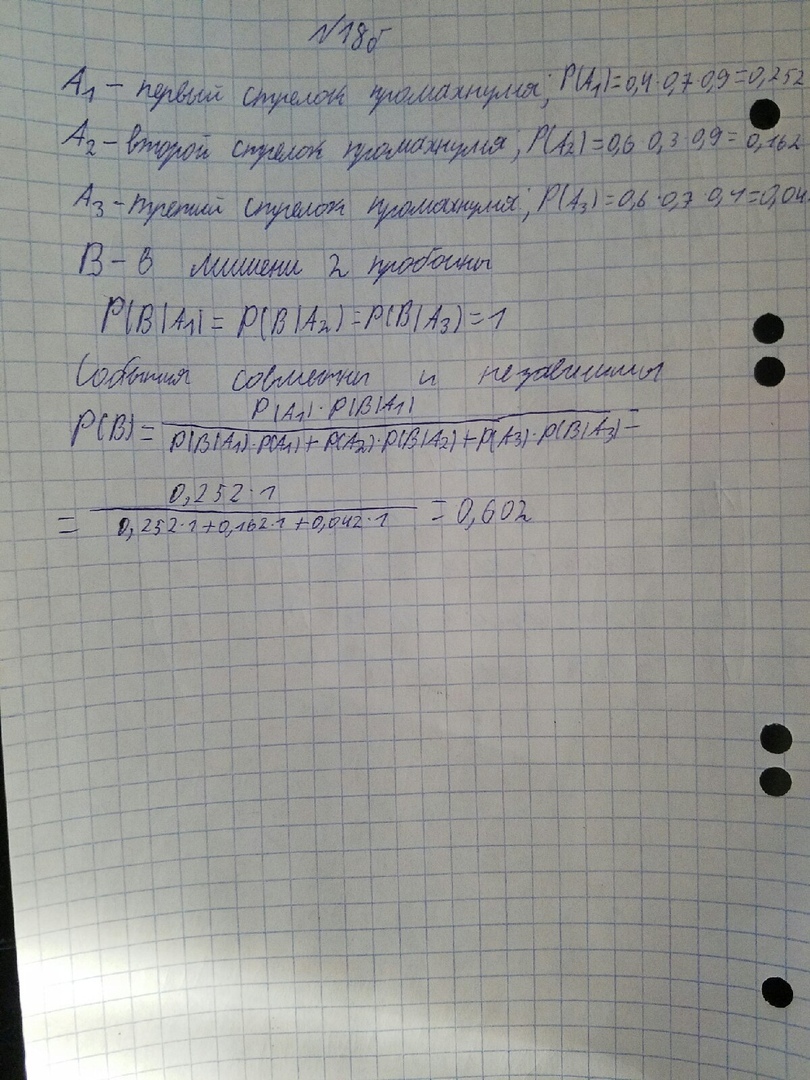 №18б
A₁ – первый стрелок промахнулся; P(A₁)=0,4·0,7·0,9=0,252
A₂ – второй стрелок промахнулся; P(A₂)=0,6·0,3·0,9=0,162
A₃ – третий стрелок промахнулся; P(A₃)=0,6·0,7·0,1=0,04
B – в мишени 2 пробоины
P(B|A₁)=P(B|A₂)=P(B|A₃)=1
События совместны и независимы
P(A₁)·P(B|A₁)
P(B)=
P(B|A₁)·P(A₁)+P(A₂)·P(B|A₂)+P(A₃)·P(B|A₃) =
0,252·1
= = 0,602
0,252·1+0,162·1+0,042·1